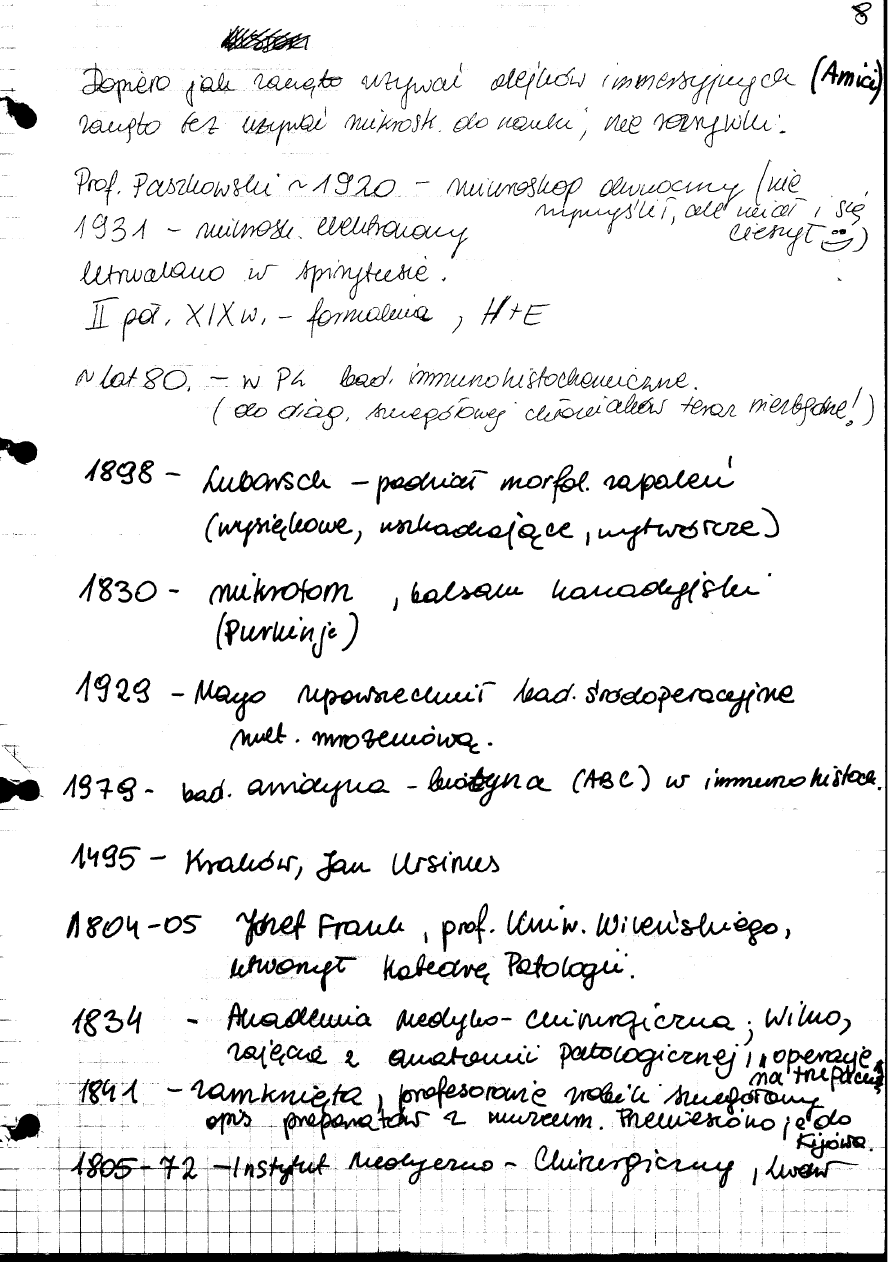 8
Dopiero jak zaczęto używać olejków immersyjnych (Amici)
zaczęto też używać mikrosk. do nauki, nie rozrywki.
Prof. Paszkowski ~1920 – mikroskop dwuoczny (nie
wymyślił, ale miał i się
cieszył )
1931 – mikrosk. elektronowy
Utrwalano w spirytusie.
II poł. XIX w. – formalina, H+E
~ lat 80. – w PL bad. immunohistochemiczne.
(do diag. szczegółowej chłoniaków teraz niezbędne!)
1898 – Lubarsch – podział morfol. zapaleń
(wysiękowe, uszkadzające, wytwórcze)
1830 – mikrotom, balsam kanadyjski
(Purkinje)
1929 – Mayo upowszechnił bad. śródoperacyjne
met. mrożeniową.
1979 – bad. awidyna – biotyna (ABC) w immunohistoch.
1495 – Kraków, Jan Ursinus
1804-05 Józef Frank, prof. Uniw. Wileńskiego,
utworzył Katedrę Patologii.
1834 – Akademia Medyko-Chirurgiczna, Wilno,
zajęcia z anatomii patologicznej i operacje
na trupach
1841 – zamknięta, profesorowie zrobili szczegółowy
opis preparatów z muzeum. Przeniesiono je do
Kijowa.
1805-72 – Instytut Medyczno-Chirurgiczny, Lwów